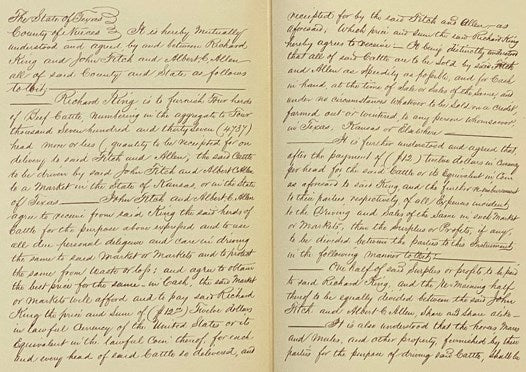 The State of Texas
County of Nueces It is hereby Mutually
understood and agreed by and between Richard
King and John Fitch and Albert C. Allen
all of said County and State as follows
to Wit;
Richard King is to furnish Four herds
of Beef Cattle, Numbering in the aggregate to Four
thousand Seven hundred and thirty Seven (4737)
head more or less (quantity to be receipted for on
delivery to said Fitch and Allen, the said Cattle
to be driven by said John Fitch and Albert C. Allen
to a Market in the State of Kansas or in the State
of Texas John Fitch and Albert C. Allen
agree to receive from said King the said herds of
Cattle for the purpose above specified and to use
all due personal diligence and care in driving
the same to said Market or Markets and to protect
the same from waste or loss; and agree to obtain
the best price for the same in Cash, the said Market
or Markets will afford and to pay said Richard
King the price and sum of ($12.00) Twelve dollars
in lawful Currency of the United States or its
Equivalent in the lawful Coin thereof for each
and every head of said Cattle so delivered, and
receipted for by the said Fitch and Allen as
aforesaid, Which price and sum the said Richard King
hereby agrees to receive It being distinctly understood
that all of said Cattle are to be sold by said Fitch
and Allen as speedily as possible, and for Cash
in hand at the time of Sale or Sales of the same, and
under no circumstances whatever to be sold on a credit
farmed out or to any person whomsoever
in Texas, Kansas or Elsewhere
It is further understood and agreed that
after the payment of ($12) twelve dollars in Currency
per head for the said Cattle or its Equivalent in Coin
as aforesaid to said King and the further reimbursement
to their parties respectively of all Expenses incident
to the Driving and Sales of the Same in such Market
or Markets, then the Surplus or Profits, if any,
to be divided between the Parties to this Instrument
in the following manner to Wit;
One half of said Surplus or profit to be paid
to said Richard King, and the Remaining half
thereof to be equally divided between the said John
Fitch and Albert C. Allen, share and share alike
It is also understood that the horses Mares
and Mules, and other property, furnished by the
parties for the purpose of driving said Cattle, shall be